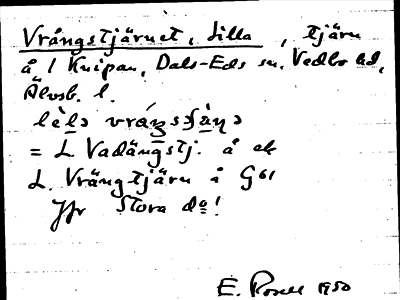 Vrångstjärnet, Lilla, tjärn
å / Knipan, Dals-Eds sn. Vedbo hd,
Älvsb. l.
= L Vadängstj. å ek
L. Vrängtjärn å G61
Jfr Stora do!
E. Rosell 1950